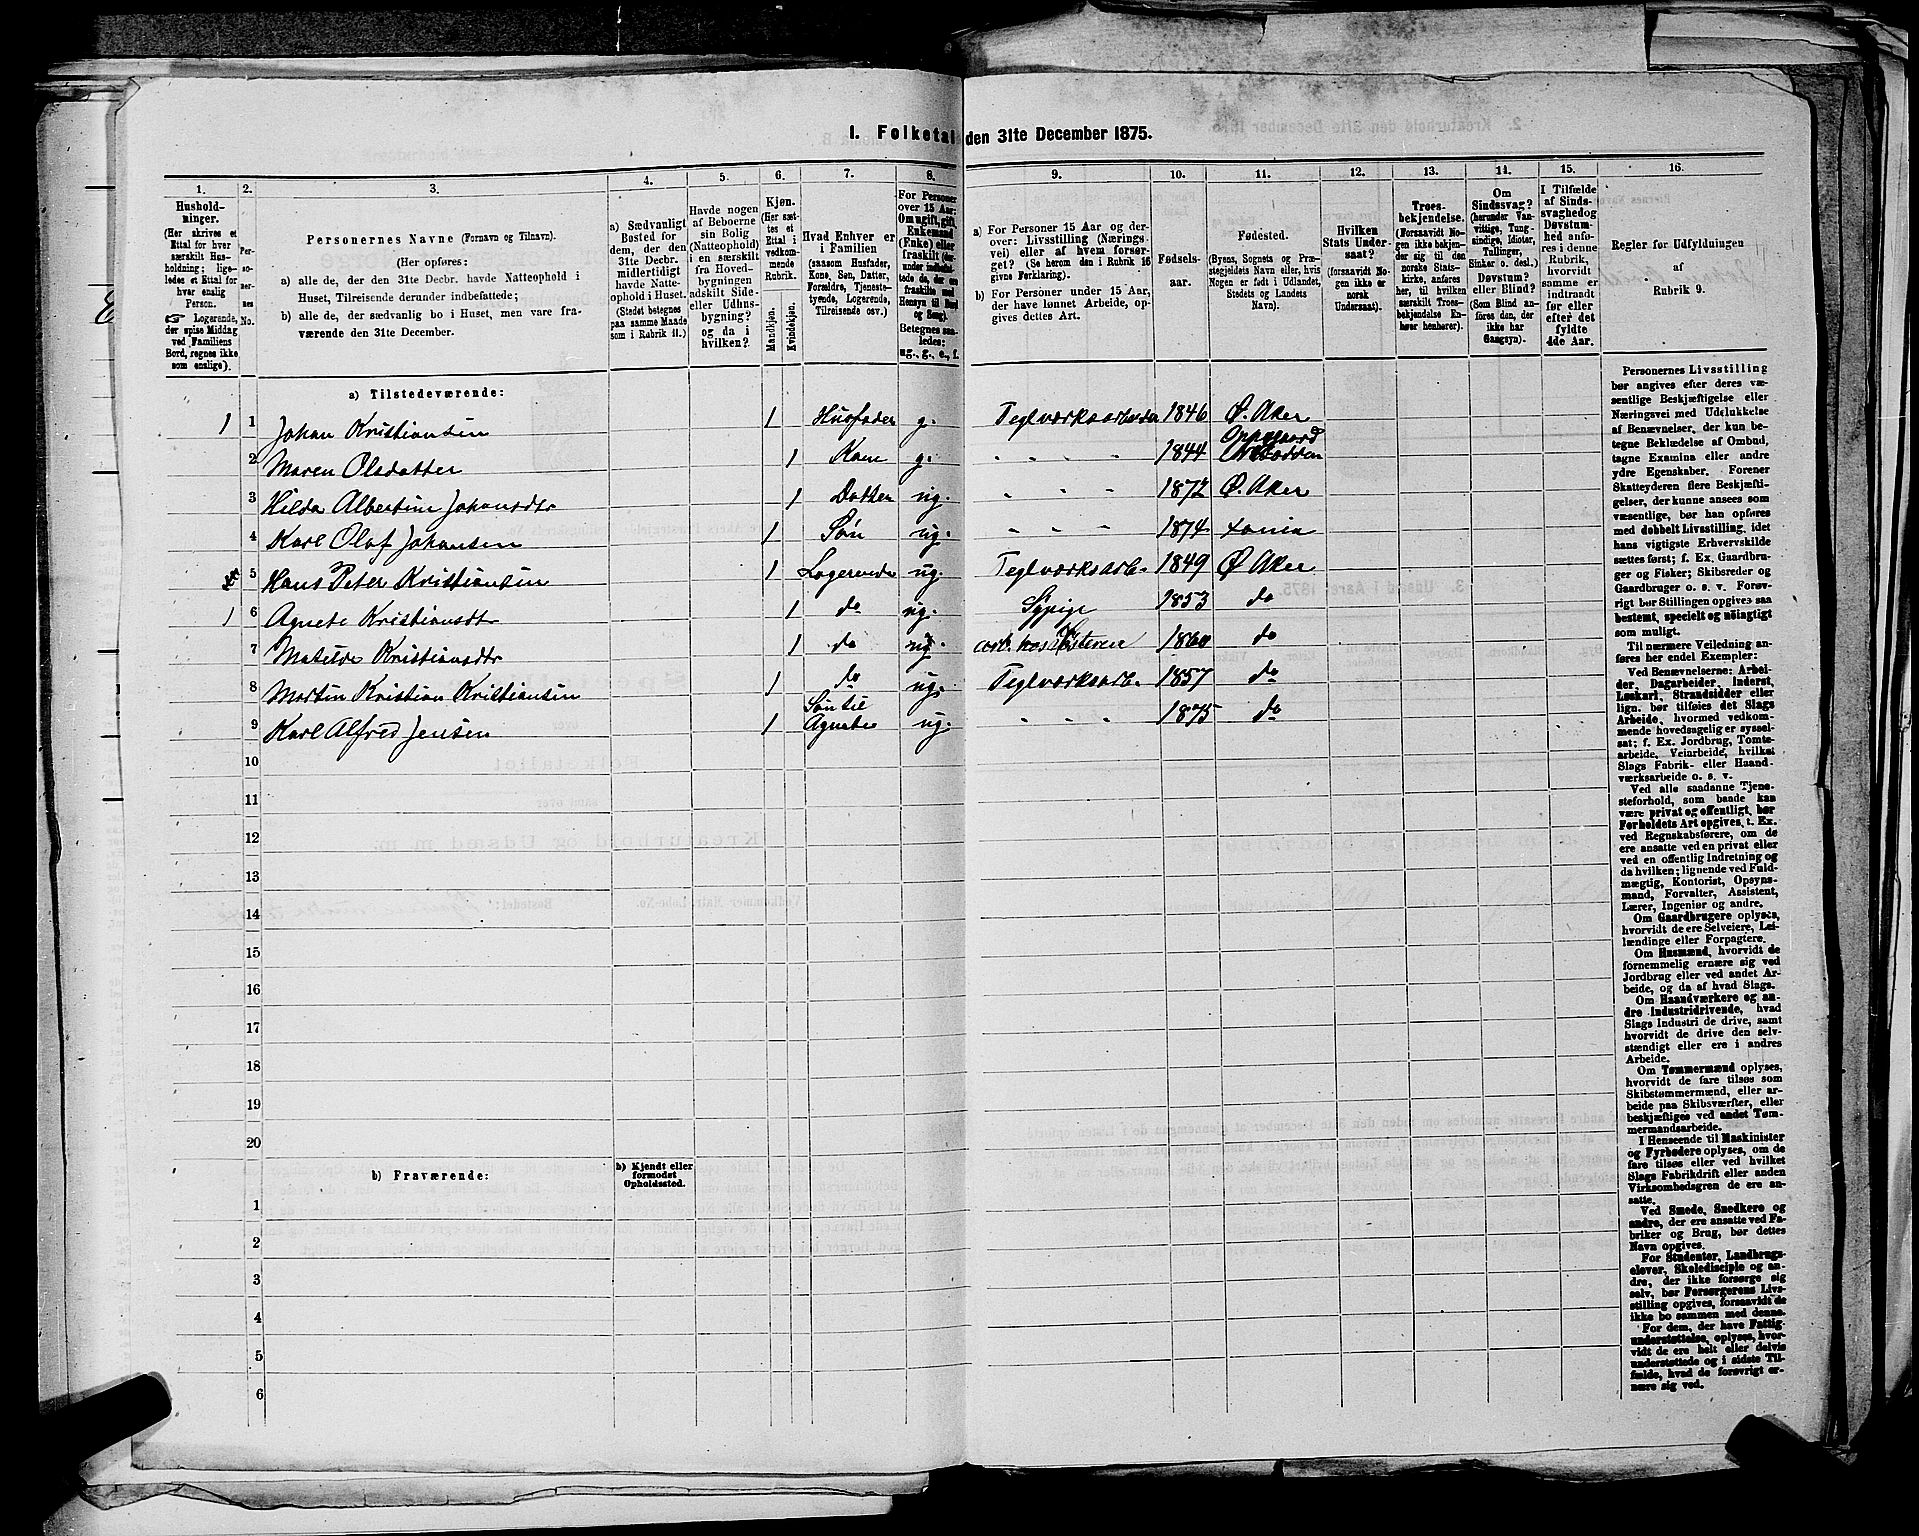 1. Folketal den 31te December 1875.
1. 2. 3. 4. 5. 6. 7. 8. 9. 10. 11. 12. 13. 14. 15. 16.
Hushold-
ninger.
(Her skrives et
Ettal for hver
særskilt Hus-
holdning; lige-
ledes et Ettal for
hver enslig
Person.
☞ Logerende,
der spise Middag
ved Familiens
Bord, regnes ikke
som enslige).
Per-
so-
ner-
nes
No.
Personernes Navne (Fornavn og Tilnavn).
(Her opføres:
a) alle de, der den 31te Decbr. havde Natteophold i
Huset, Tilreisende derunder indbefattede;
b) alle de, der sædvanlig bo i Huset, men vare fra-
værende den 31te December.
a) Sædvanligt
Bosted for
dem, der den
31te Decbr.
midlertidigt
havde Natte-
ophold i Huset.
(Stedet betegnes
paa samme Maade
som i Rubrik 11.)
Havde nogen
af Beboerne
sin Bolig
(Natteophold)
i en særskilt
fra Hoved-
bygningen
adskilt Side-
eller Udhus-
bygning?
og da i
hvilken?
Kjøn.
(Her sæt-
tes et
Ettal i
vedkom-
mende
Rubrik.
Mandkjøn.
Kvindekjøn.
Hvad Enhver er
i Familien
(saasom Husfader,
Kone, Søn, Datter,
Forældre, Tjeneste-
tyende, Logerende,
Tilreisende osv.)
For Personer
over 15 Aar:
Om ugift, gift,
Enkemand
(Enke) eller
fraskilt
Betegnes saa-
ledes:
ug., g., e., f.
a) For Personer 15 Aar og der-
over: Livsstilling (Nærings-
vei) eller af hvem forsør-
get? (Se herom den i Rubrik 16
givne Forklaring).
b) For Personer under 15 Aar,
der have lønnet Arbeide, op-
gives dettes Art.
Fødsels-
aar.
Fødested.
(Byens, Sognets og Præ-
stegjeldets Navn eller, hvis
Nogen er født i Udlandet,
Stedets og Landets
Navn).
Hvilken
Stats Under-
saat?
(forsaavidt No-
gen ikke er
norsk
Undersaat).
Troes-
bekjendelse.
(Forsaavidt No-
gen ikke bekjen-
der sig til den
norske Stats-
kirke, anføres
her, til hvilken
særskilt Troes-
bekjendelse En-
hver henhører).
Om
Sindssvag?
(herunder Van-
vittige, Tung-
sindige, Idioter,
Tullinger,
Sinker o. desl.)
Døvstum?
eller Blind?
(Som Blind an-
føres den, der
ikke har
Gangsyn).
I Tilfælde
af Sinds-
svaghedog
Døvstum-
hed anfø-
res i denne
Rubrik,
hvorvidt
samme er
indtraadt
før eller
efter det
fyldte
4de Aar.
Regler for Udfyldningen
af
Rubrik 9.
a) Tilstedeværende:
1 1 Johan Kristiansen 1 Husfader g. Teglværksarbeider 1846 Ø. Aker
Oppegaard
2 Maren Olsdatter 1 Kone g. " " " 1844 Næsodden
3 Hilda Albertine Johansdtr 1 Datter ug. " " " 1872 Ø. Aker
4 Karl Olaf Johansen 1 Søn ug. " " " 1874 Xania
5 Hans Peter Kristiansen 1 Logerende ug. Teglværksarb. 1849 Ø Aker
1 6 Agnete Kristiansdtr 1 do ug. Sypige 1853 do
7 Matilde Kristiansdtr 1 do ug. arb. hos Søsteren 1860 do
8 Martin Kristian Kristiansen 1 do ug. Teglværksarb. 1857 do
Søn til
9 Karl Alfred Jensen 1 Agnete ug. " " " 1875 do
10
11
12
13
14
15
16
17
18
19
20
b) Fraværende:
b) Kjendt eller
formodet
Opholdssted.
1
2
3
4
5
6
Personernes Livsstilling
bør angives efter deres væ-
sentlige Beskjæftigelse eller
Næringsvei med Udelukkelse
af Benævnelser, der kun be-
tegne Beklædelse af Ombud,
tagne Examina eller andre
ydre Egenskaber. Forener
Skatteyderen flere Beskjæfti-
gelser, der kunne ansees som
væsentlige, bør han opføres
med dobbelt Livsstilling, idet
hans vigtigste Erhvervskilde
sættes først; f. Ex. Gaardbru-
ger og Fisker; Skibsreder og
Gaardbruger o. s. v. Forøv-
rigt bør Stillingen opgives saa
bestemt, specielt og nøiagtigt
som muligt.
Til nærmere Veiledning an-
føres her endel Exempler:
Ved Benævnelserne: Arbei-
der, Dagarbeider, Inderst,
Løskarl, Strandsidder eller
lign. bør tilføies det Slags
Arbeide, hvormed vedkom-
mende hovedsagelig er syssel-
sat; f. Ex. Jordbrug, Tomte-
arbeide, Veiarbeide, hvilket
Slags Fabrik- eller Haand-
værksarbeide o. s. v.
Ved alle saadanne Tjene-
steforhold, som baade kan
være privat og offentligt, bør
Forholdets Art opgives, t. Ex.
ved Regnskabsførere, om de
ere ansatte ved en privat eller
ved en offentlig Indretning og
da hvilken; lignende ved Fuld-
mægtig, Kontorist, Opsyns-
mand, Forvalter, Assistent,
Lærer, Ingeniør og andre.
Om Gaardbrugere oplyses,
hvorvidt de ere Selveiere, Lei-
lændinge eller Forpagtere.
Om Husmænd, hvorvidt de
fornemmelig ernære sig ved
Jordbrug eller ved andet Ar-
beide, og da af hvad Slags.
Om Haandværkere og an-
dre Industridrivende, hvad
Slags Industri de drive, samt
hvorvidt de drive den selv-
stændigt eller ere i andres
Arbeide.
Om Tømmermænd oplyses,
hvorvidt de fare tilsøs som
Skibstømmermænd, eller ar-
beide paa Skibsværfter, eller
beskjæftiges ved andet Tøm-
mermandsarbeide.
I Henseende til Maskinister
og Fyrbødere oplyses, om de
fare tilsøs eller ved hvilket
Slags Fabrikdrift eller anden
Virksomhedsgren de ere an-
satte.
Ved Smede, Snedkere og
andre, der ere ansatte ved Fa-
briker og Brug, bør dettes
Navn opgives.
For Studenter, Landbrugs-
elever, Skoledisciple og an-
dre, der ikke forsørge sig
selv, bør Forsørgerens Livs-
stilling opgives, forsaavidt de
ikke bo sammen med denne.
For dem, der have Fattig-
understøttelse, oplyses, hvor-
vidt de ere helt eller delvis
understøttede og i sidste Til-
fælde, hvad de forøvrigt er-
nære sig ved.